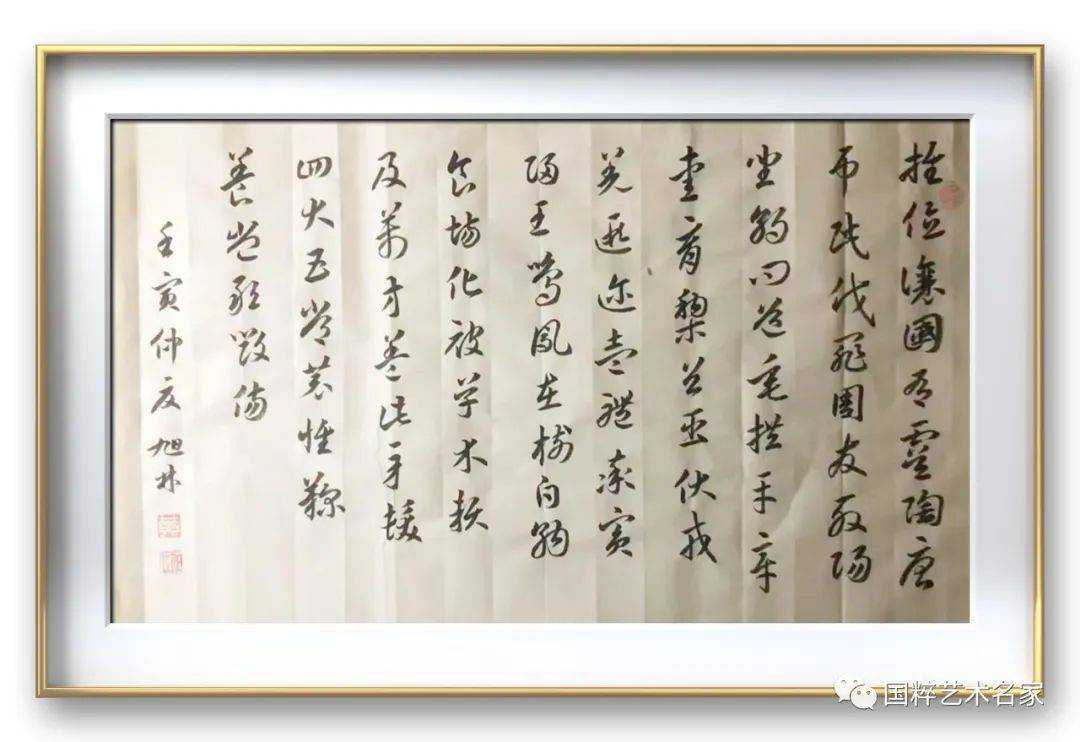 推位讓國有虞陶唐
弔民伐罪周發殷湯
坐朝問道垂拱平章
愛育黎首臣伏戎
羌遐邇壹體率賓
歸王鳴鳳在樹白駒
食場化被草木賴
及萬方蓋此身髮
四大五常恭惟鞠
養豈敢毀傷
壬寅仲夏旭林
国粹艺术名家